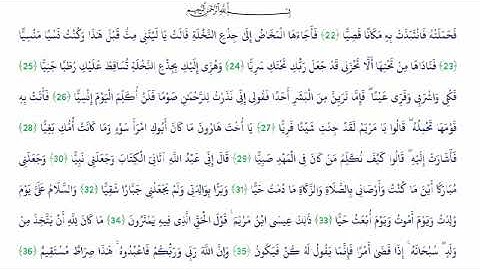 بِسْمِ اللَّهِ الرَّحْمَٰنِ الرَّحِيمِ
فَحَمَلَتْهُ فَانْتَبَذَتْ بِهِ مَكَانًا قَصِيًّا ﴿22﴾ فَأَجَاءَهَا الْمَخَاضُ إِلَىٰ جِذْعِ النَّخْلَةِ قَالَتْ يَا لَيْتَنِي مِتُّ قَبْلَ هَٰذَا وَكُنْتُ نَسْيًا مَنْسِيًّا
﴿23﴾ فَنَادَاهَا مِنْ تَحْتِهَا أَلَّا تَحْزَنِي قَدْ جَعَلَ رَبُّكِ تَحْتَكِ سَرِيًّا ﴿24﴾ وَهُزِّي إِلَيْكِ بِجِذْعِ النَّخْلَةِ تُسَاقِطْ عَلَيْكِ رُطَبًا جَنِيًّا ﴿25﴾
فَكُلِي وَاشْرَبِي وَقَرِّي عَيْنًا ۖ فَإِمَّا تَرَيِنَّ مِنَ الْبَشَرِ أَحَدًا فَقُولِي إِنِّي نَذَرْتُ لِلرَّحْمَٰنِ صَوْمًا فَلَنْ أُكَلِّمَ الْيَوْمَ إِنْسِيًّا ﴿26﴾ فَأَتَتْ بِهِ
قَوْمَهَا تَحْمِلُهُ ۖ قَالُوا يَا مَرْيَمُ لَقَدْ جِئْتِ شَيْئًا فَرِيًّا ﴿27﴾ يَا أُخْتَ هَارُونَ مَا كَانَ أَبُوكِ امْرَأَ سَوْءٍ وَمَا كَانَتْ أُمُّكِ بَغِيًّا ﴿28﴾
فَأَشَارَتْ إِلَيْهِ ۖ قَالُوا كَيْفَ نُكَلِّمُ مَنْ كَانَ فِي الْمَهْدِ صَبِيًّا ﴿29﴾ قَالَ إِنِّي عَبْدُ اللَّهِ آتَانِيَ الْكِتَابَ وَجَعَلَنِي نَبِيًّا ﴿30﴾ وَجَعَلَنِي
مُبَارَكًا أَيْنَ مَا كُنْتُ وَأَوْصَانِي بِالصَّلَاةِ وَالزَّكَاةِ مَا دُمْتُ حَيًّا ﴿31﴾ وَبَرًّا بِوَالِدَتِي وَلَمْ يَجْعَلْنِي جَبَّارًا شَقِيًّا ﴿32﴾ وَالسَّلَامُ عَلَيَّ يَوْمَ
وُلِدْتُ وَيَوْمَ أَمُوتُ وَيَوْمَ أُبْعَثُ حَيًّا ﴿33﴾ ذَٰلِكَ عِيسَى ابْنُ مَرْيَمَ ۚ قَوْلَ الْحَقِّ الَّذِي فِيهِ يَمْتَرُونَ ﴿34﴾ مَا كَانَ لِلَّهِ أَنْ يَتَّخِذَ مِنْ
وَلَدٍ ۖ سُبْحَانَهُ ۚ إِذَا قَضَىٰ أَمْرًا فَإِنَّمَا يَقُولُ لَهُ كُنْ فَيَكُونُ ﴿35﴾ وَإِنَّ اللَّهَ رَبِّي وَرَبُّكُمْ فَاعْبُدُوهُ ۚ هَٰذَا صِرَاطٌ مُسْتَقِيمٌ ﴿36﴾